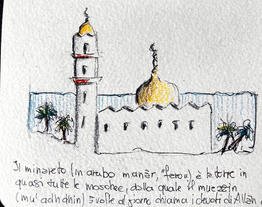 Il minareto (in arabo manār, "faro") è la torre in
quasi tutte le moschee, dalla quale il muezzin
(mu'adhdhin) 5 volte al giorno chiama i devoti di Allah